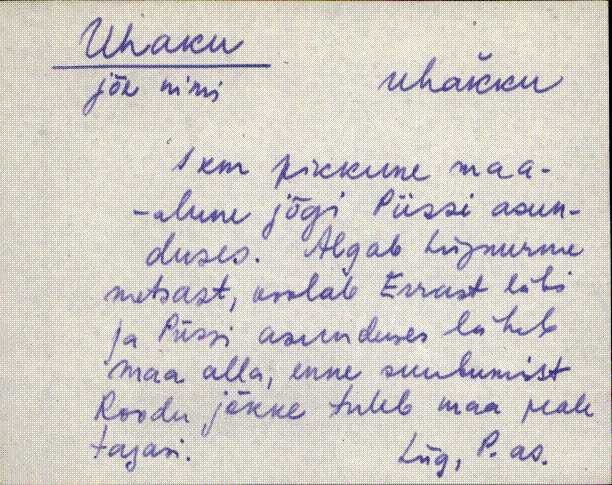 Uhaku
jõe nimi
uhaκ̆ku
1 km pikkune maa-
-alune jõgi Püssi asun-
duses. Algab
metsast, voolab Errast läbi
ja Püssi asunduses läheb
maa alla, enne suubumist
Roodu jõkke tuleb maa peale
tagasi.
Lüg, P. as.